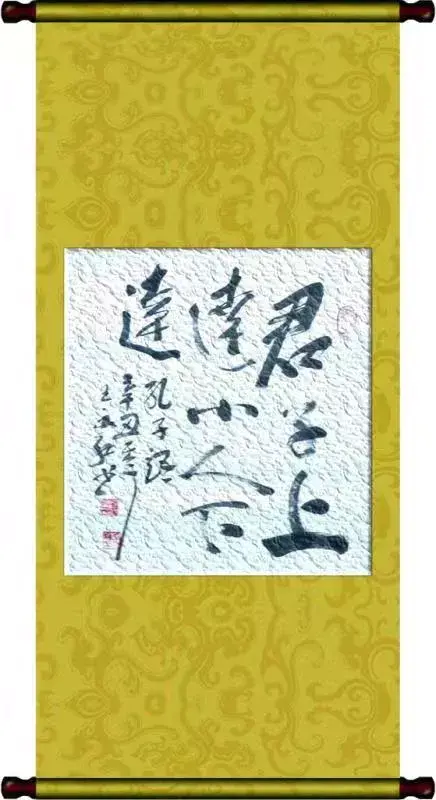 君子上
達小人下
達
孔子語
辛丑